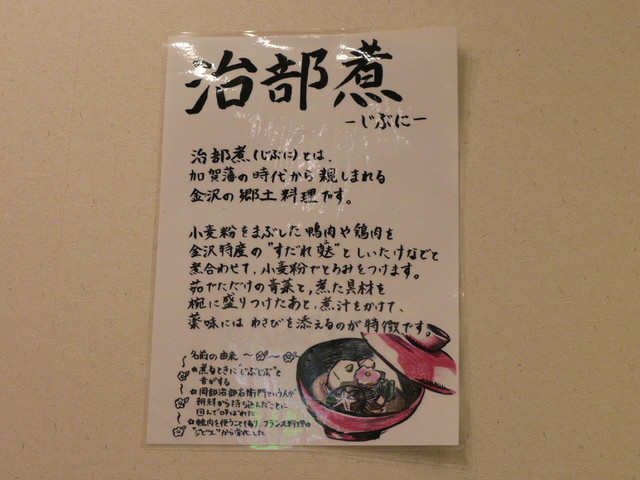 治部煮
ーじぶにー
治部煮(じぶに)とは、
加賀藩の時代から親しまれる
金沢の郷土料理です。
小麦粉をまぶした鴨肉や鶏肉を
金沢特産の"すだれ麩"としいたけなどと
煮合わせて、小麦粉でとろみをつけます。
茹でただけの青菜と、煮た具材を
椀に盛りつけたあと、煮汁をかけて、
薬味にはわさびを添えるのが特徴です。
名前の由来
煮るときに"じぶじぶ"と
音がする
岡部治部右衛門という人が
朝鮮から持ち込んだことに
因んで呼ばれた
鴨肉を使うことから、フランス料理の
"ジビエ"から変化した